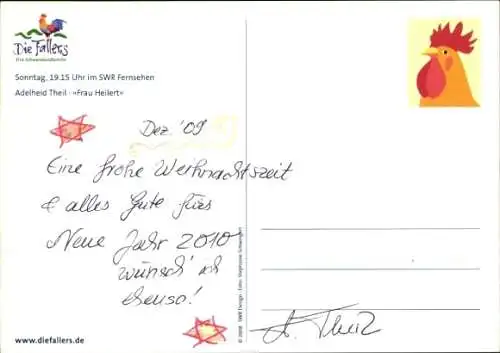 Die Fallers
Die Schwarzwaldfamilie
Sonntag, 19.15 Uhr im SWR Fernsehen
Adelheid Theil · »Frau Heilert«
Dez. '09
Eine frohe Weihnachtszeit
& alles Gute fürs
Neue Jahr 2010
wünsch' ich
ebenso!
www.diefallers.de
A. Theil